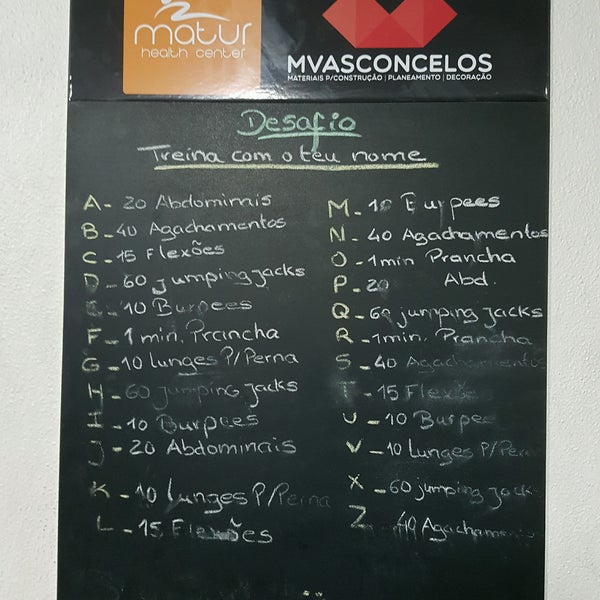 matur
health center
MVASCONCELOS
MATERIAIS P/CONSTRUÇÃO | PLANEAMENTO | DECORAÇÃO
Desafio
Treina com o teu nome
A - 20 Abdominais
B - 40 Agachamentos
C - 15 Flexões
D - 60 jumping jacks
E - 10 Burpees
F - 1 min. Prancha
G - 10 lunges P/Perna
H - 60 jumping jacks
I - 10 Burpees
J - 20 Abdominais
K - 10 lunges P/Perna
L - 15 Flexões
M - 10 Burpees
N - 40 Agachamentos
O - 1min Prancha
P - 20 Abd.
Q - 60 jumping jacks
R - 1min. Prancha
S - 40 Agachamentos
T - 15 Flexões
U - 10 Burpee
V - 10 Lunges P/Perna
X - 60 jumping jack
Z - 40 Agachamen